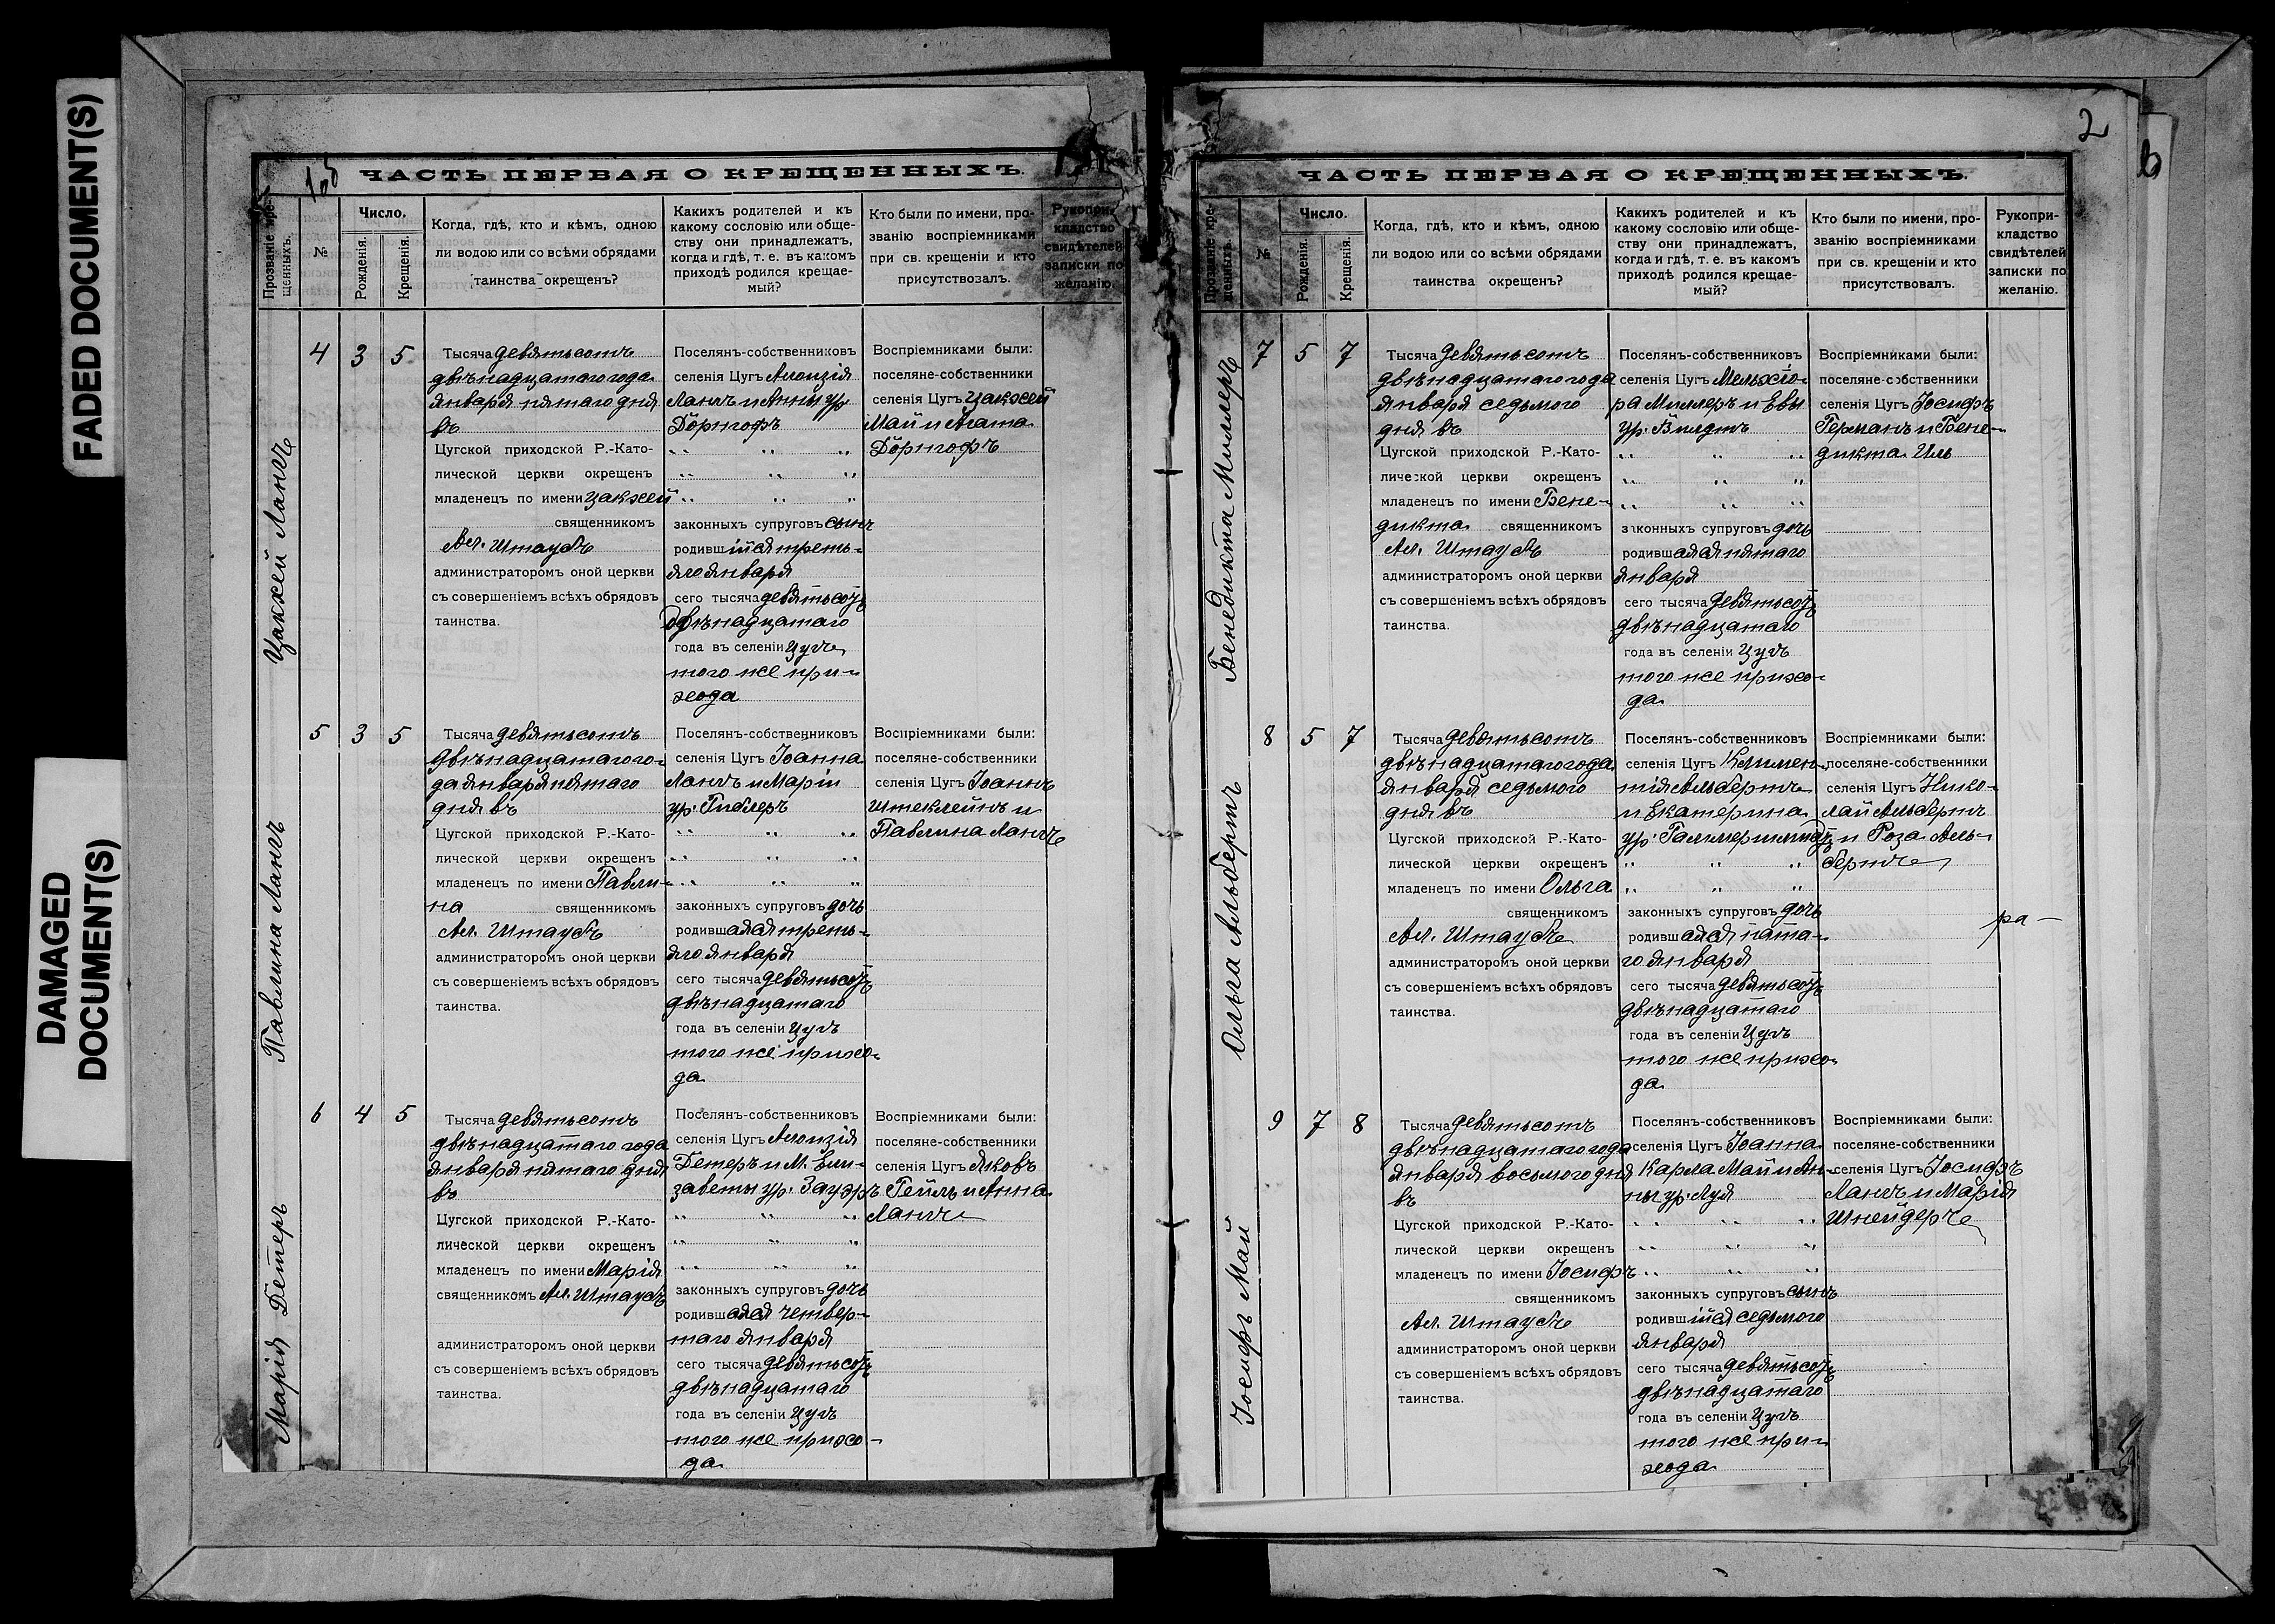 FADED DOCUMENT(S)
DAMAGED
DOCUMENT(S)
1 об
ЧАСТЬ ПЕРВАЯ О КРЕЩЕННЫХЪ.
Прозваніе кре-
щенныхъ.
№
Число.
Рожденія.
Крещенія.
Когда, гдѣ, кто и кѣмъ, одною
ли водою или со всѣми обрядами
таинства окрещенъ?
Какихъ родителей и къ
какому сословію или обще-
ству они принадлежатъ,
когда и гдѣ, т. е. въ какомъ
приходѣ родился крещае-
мый?
Кто были по имени, про-
званію воспріемниками
при св. крещеніи и кто
присутствовалъ.
Рукопри-
кладство
свидѣтелей
записки по
желанію.
Цакхей Лангъ
4 3 5
Тысяча девятьсотъ
двѣнадцатаго года
января пятаго дня
въ
Цугской приходской Р.-Като-
лической церкви окрещенъ
младенецъ по имени Цакхей
священникомъ
Ал. Штаубъ
администраторомъ оной церкви
съ совершеніемъ всѣхъ обрядовъ
таинства.
Поселянъ-собственниковъ
селенія Цугъ Алоизія
Лангъ и Анны ур.
Дöрнгофъ
законныхъ супруговъ сынъ
родившійся треть-
яго января
сего тысяча девятьсотъ
двѣнадцатаго
года въ селеніи Цугъ
того же при-
хода
Воспріемниками были:
поселяне-собственники
селенія Цугъ Цакхей
Май и Агата
Дöрнгофъ
Павлина Лангъ
5 3 5
Тысяча девятьсотъ
двѣнадцатаго го-
да января пятаго
дня въ
Цугской приходской Р.-Като-
лической церкви окрещенъ
младенецъ по имени Павли-
на священникомъ
Ал. Штаубъ
администраторомъ оной церкви
съ совершеніемъ всѣхъ обрядовъ
таинства.
Поселянъ-собственниковъ
селенія Цугъ Іоанна
Лангъ и Маріи
ур. Гиблеръ
законныхъ супруговъ дочь
родившаяся треть-
яго января
сего тысяча девятьсотъ
двѣнадцатаго
года въ селеніи Цугъ
того же прихо-
да
Воспріемниками были:
поселяне-собственники
селенія Цугъ Іоаннъ
Штеклейнъ и
Павлина Лангъ
Марія Детеръ
6 4 5
Тысяча девятьсотъ
двѣнадцатаго года
января пятаго дня
въ
Цугской приходской Р.-Като-
лической церкви окрещенъ
младенецъ по имени Марія
священникомъ Ал. Штаубъ
администраторомъ оной церкви
съ совершеніемъ всѣхъ обрядовъ
таинства.
Поселянъ-собственниковъ
селенія Цугъ Алоизія
Детеръ и М. Ели-
заветы ур. Зауэръ
законныхъ супруговъ дочь
родившаяся четвер-
таго января
сего тысяча девятьсотъ
двѣнадцатаго
года въ селеніи Цугъ
того же прихо-
да
Воспріемниками были:
поселяне-собственники
селенія Цугъ Яковъ
Гейль и Анна
Лангъ
2
ЧАСТЬ ПЕРВАЯ О КРЕЩЕННЫХЪ.
Прозваніе кре-
щенныхъ.
№
Число.
Рожденія.
Крещенія.
Когда, гдѣ, кто и кѣмъ, одною
ли водою или со всѣми обрядами
таинства окрещенъ?
Какихъ родителей и къ
какому сословію или обще-
ству они принадлежатъ,
когда и гдѣ, т. е. въ какомъ
приходѣ родился крещае-
мый?
Кто были по имени, про-
званію воспріемниками
при св. крещеніи и кто
присутствовалъ.
Рукопри-
кладство
свидѣтелей
записки по
желанію.
Бенедикта Миллеръ
7 5 7
Тысяча девятьсотъ
двѣнадцатаго года
января седьмого
дня въ
Цугской приходской Р.-Като-
лической церкви окрещенъ
младенецъ по имени Бене-
дикта священникомъ
Ал. Штаубъ
администраторомъ оной церкви
съ совершеніемъ всѣхъ обрядовъ
таинства.
Поселянъ-собственниковъ
селенія Цугъ Мельхіо-
ра Миллеръ и Евы
ур. Вильдтъ
законныхъ супруговъ дочь
родившаяся пятаго
января
сего тысяча девятьсотъ
двѣнадцатаго
года въ селеніи Цугъ
того же прихо-
да
Воспріемниками были:
поселяне-собственники
селенія Цугъ Іосифъ
Германъ и Бене-
дикта Иль
Ольга Альбертъ
8 5 7
Тысяча девятьсотъ
двѣнадцатаго года
января седьмого
дня въ
Цугской приходской Р.-Като-
лической церкви окрещенъ
младенецъ по имени Ольга
священникомъ
Ал. Штаубъ
администраторомъ оной церкви
съ совершеніемъ всѣхъ обрядовъ
таинства.
Поселянъ-собственниковъ
селенія Цугъ Климен-
тія Альбертъ
и Екатерина
ур. Гаммершмидтъ
законныхъ супруговъ дочь
родившаяся пята-
го января
сего тысяча девятьсотъ
двѣнадцатаго
года въ селеніи Цугъ
того же прихо-
да
Воспріемниками были:
поселяне-собственники
селенія Цугъ Нико-
лай Альбертъ
и Роза Аль-
бертъ
ра
Іосифъ Май
9 7 8
Тысяча девятьсотъ
двѣнадцатаго года
января восьмого дня
въ
Цугской приходской Р.-Като-
лической церкви окрещенъ
младенецъ по имени Іосифъ
священникомъ
Ал. Штаубъ
администраторомъ оной церкви
съ совершеніемъ всѣхъ обрядовъ
таинства.
Поселянъ-собственниковъ
селенія Цугъ Іоанна
Карла Май и Ан-
ны ур. Луя
законныхъ супруговъ сынъ
родившійся седьмого
января
сего тысяча девятьсотъ
двѣнадцатаго
года въ селеніи Цугъ
того же при-
хода
Воспріемниками были:
поселяне-собственники
селенія Цугъ Іосифъ
Лангъ и Марія
Шнейдеръ